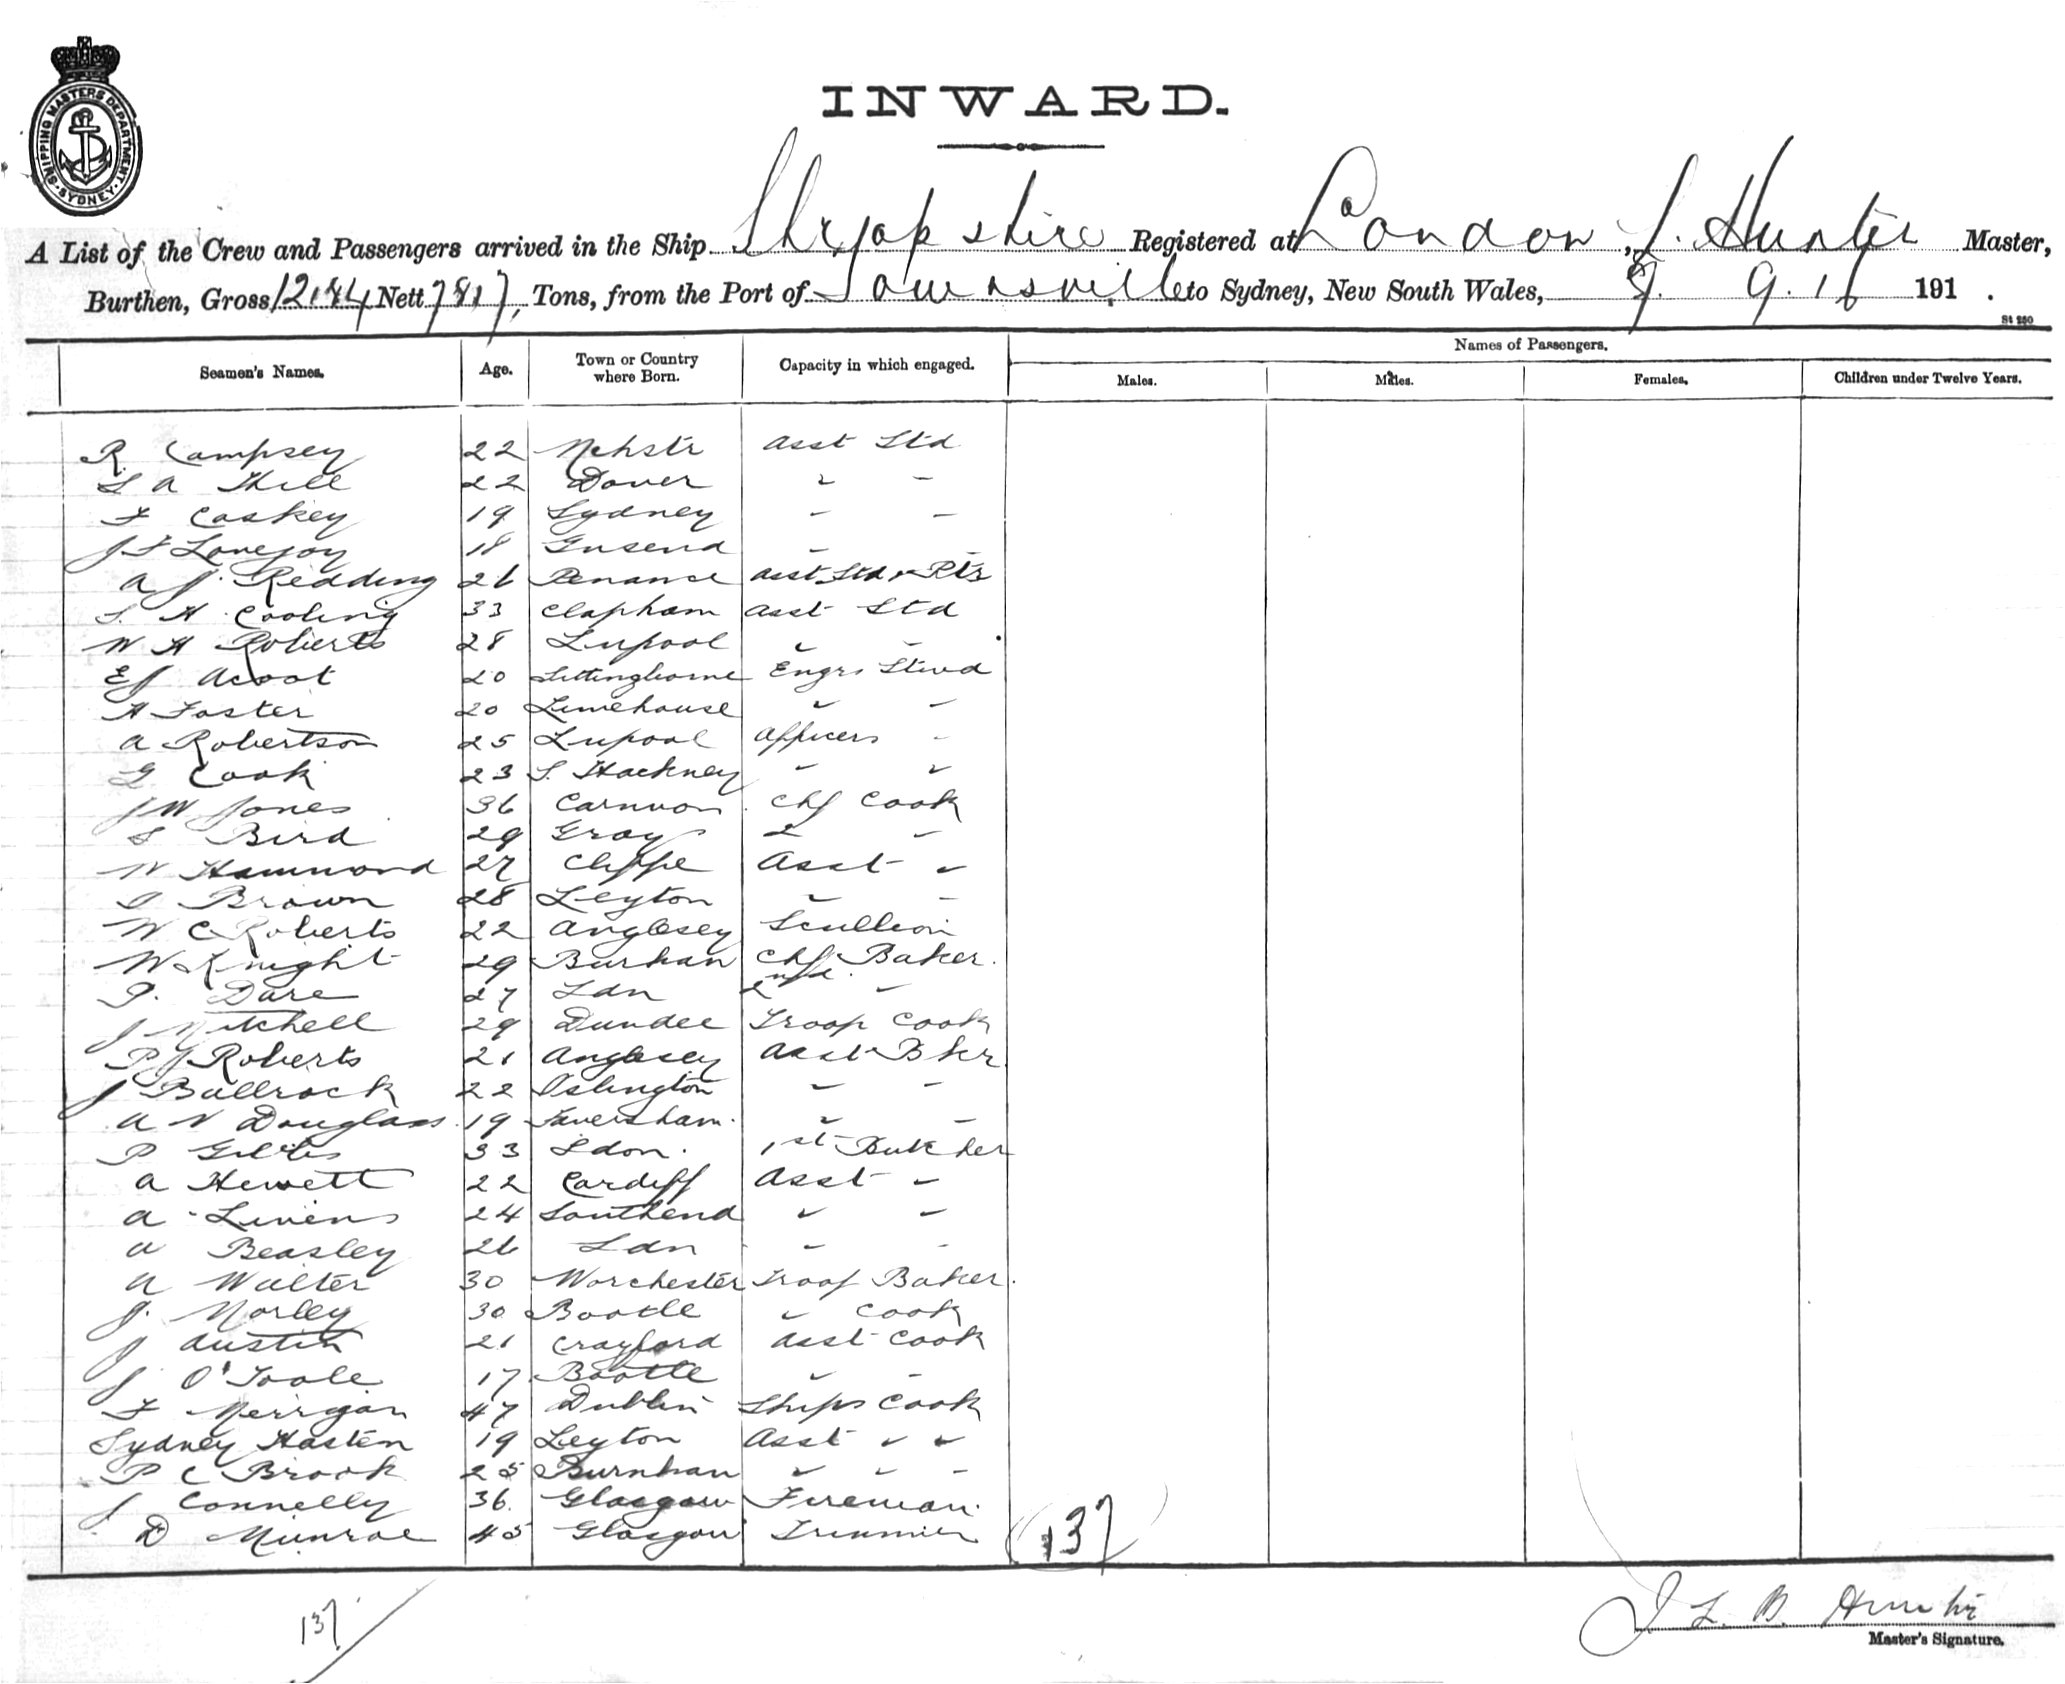 SHIPPING MASTERS DEPARTMENT. SYDNEY
INWARD.
A List of the Crew and Passengers arrived in the Ship Shropshire Registered at London, J. Hunter Master,
Burthen, Gross 12184 Nett 7817, Tons, from the Port of Townsville to Sydney, New South Wales, 9. 9. 16 191 .
St 280
Seamen's Names. Age. Town or Country where Born. Capacity in which engaged. Names of Passengers.
Males. Males. Females. Children under Twelve Years.
R. Campsey 22 Asst Std
L A Hill 22 Dover " "
F Caskey 19 Sydney " "
J F Lovejoy 18 " "
A J. Redding 26 Penance Asst Std & Ptr
S. H Cooling 33 Clapham Asst Std
W H Roberts 28 Lupool " "
E J Acoot 20 Sittingborne Engrs Stwd
H Foster 20 Limehouse " "
A Robertson 25 Lupool Officers "
G Cook 23 S. Hackney " "
J W Jones 36 Carnvon Chf Cook
S Bird 29 Grays 2 "
W Hammond 27 Cliffe Asst "
Brown 28 Leyton " "
W C Roberts 22 Anglesey Scullion
W Knight 29 Burhan Chf Baker.
Dare 27 Ldn 2nd "
J Mitchell 29 Dundee Troop Cook
P J Roberts 21 Anglesey Asst Bker
J Bullrock 22 Islington " "
A V Douglass 19 Faversham. " "
P 33 Ldon. 1st Butcher
A Hewett 22 Cardiff Asst "
A Linens 24 Southend " "
A Beasley 26 Ldn " "
A Walter 30 Worchester Troop Baker.
J. Morley 30 Bootle " Cook
J Austin 21 Crayford Asst Cook
J O'Toole 17 Bootle " "
F Merrigan 47 Dublin Ships Cook
Sydney Hasten 19 Leyton Asst " "
P C Brook 25 Burnhan " " "
J Connelly 36. Glasgow Fireman.
D Munroe 45 Glasgow Trimmer
137
137
J L B. Hunter
Master's Signature.